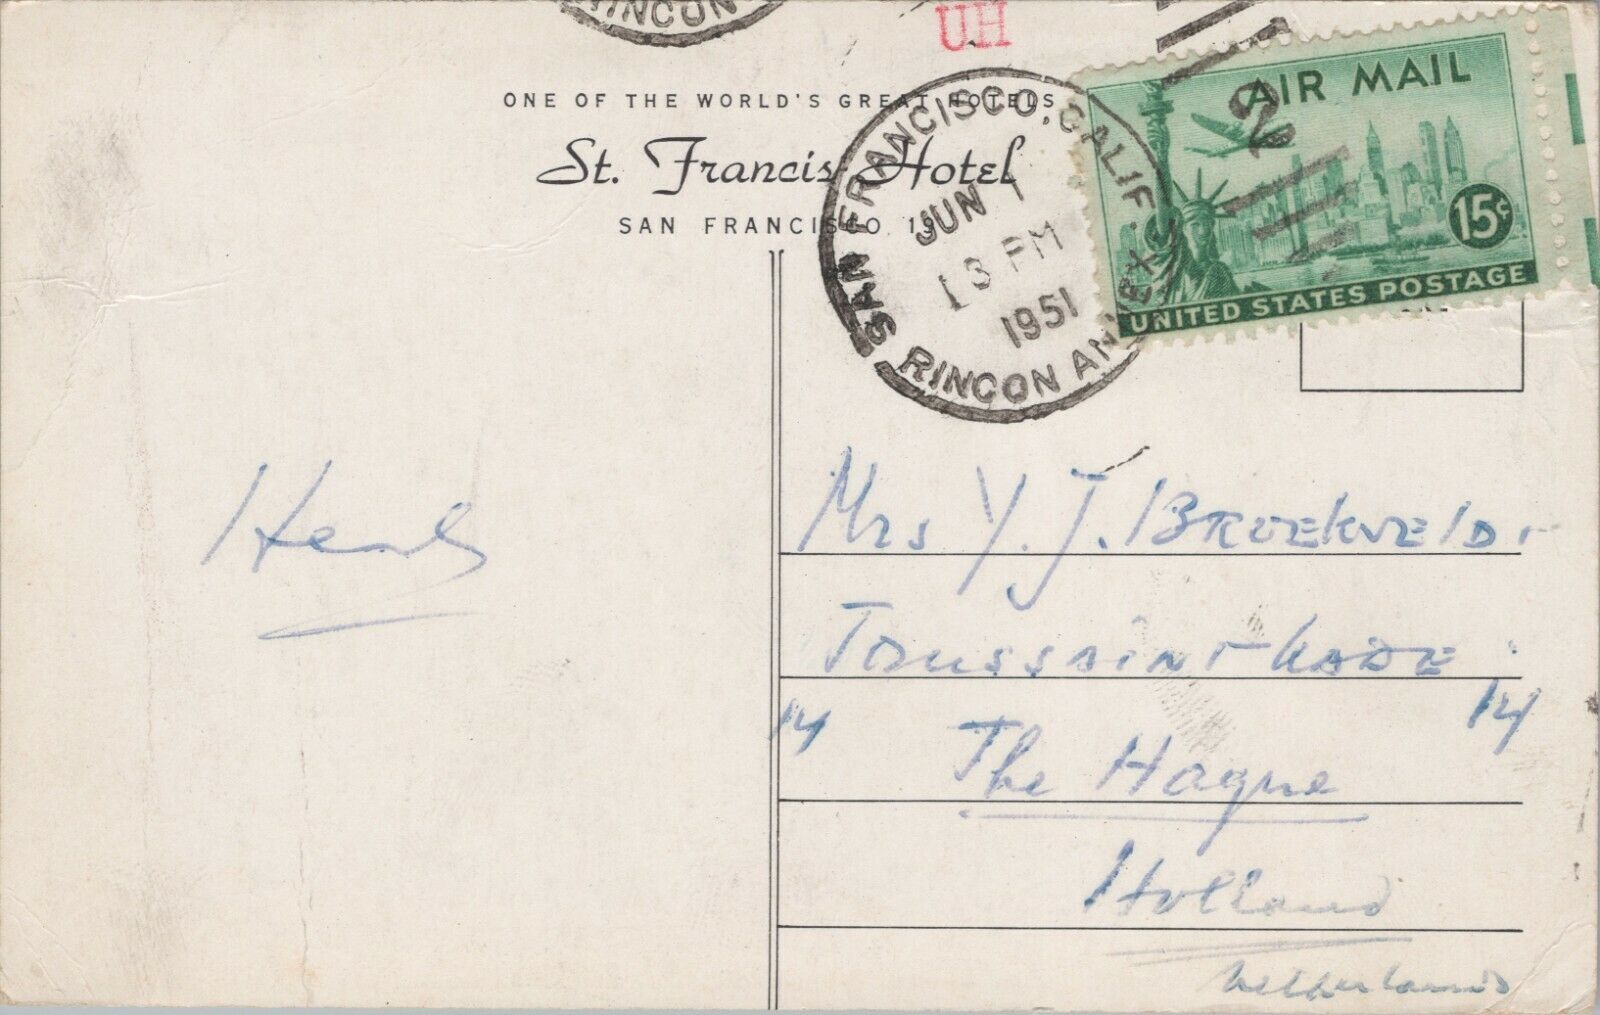 RINCON
UH
ONE OF THE WORLD'S GREAT HOTELS
St. Francis Hotel
SAN FRANCISCO 19
SAN FRANCISCO, CALIF.
JUN 1
3 PM
1951
RINCON ANNEX
2
AIR MAIL
15¢
UNITED STATES POSTAGE
Mrs Y. J. BROEKVELDT
TOUSSAINTKADE
14 14
The Hague
Holland
Netherlands